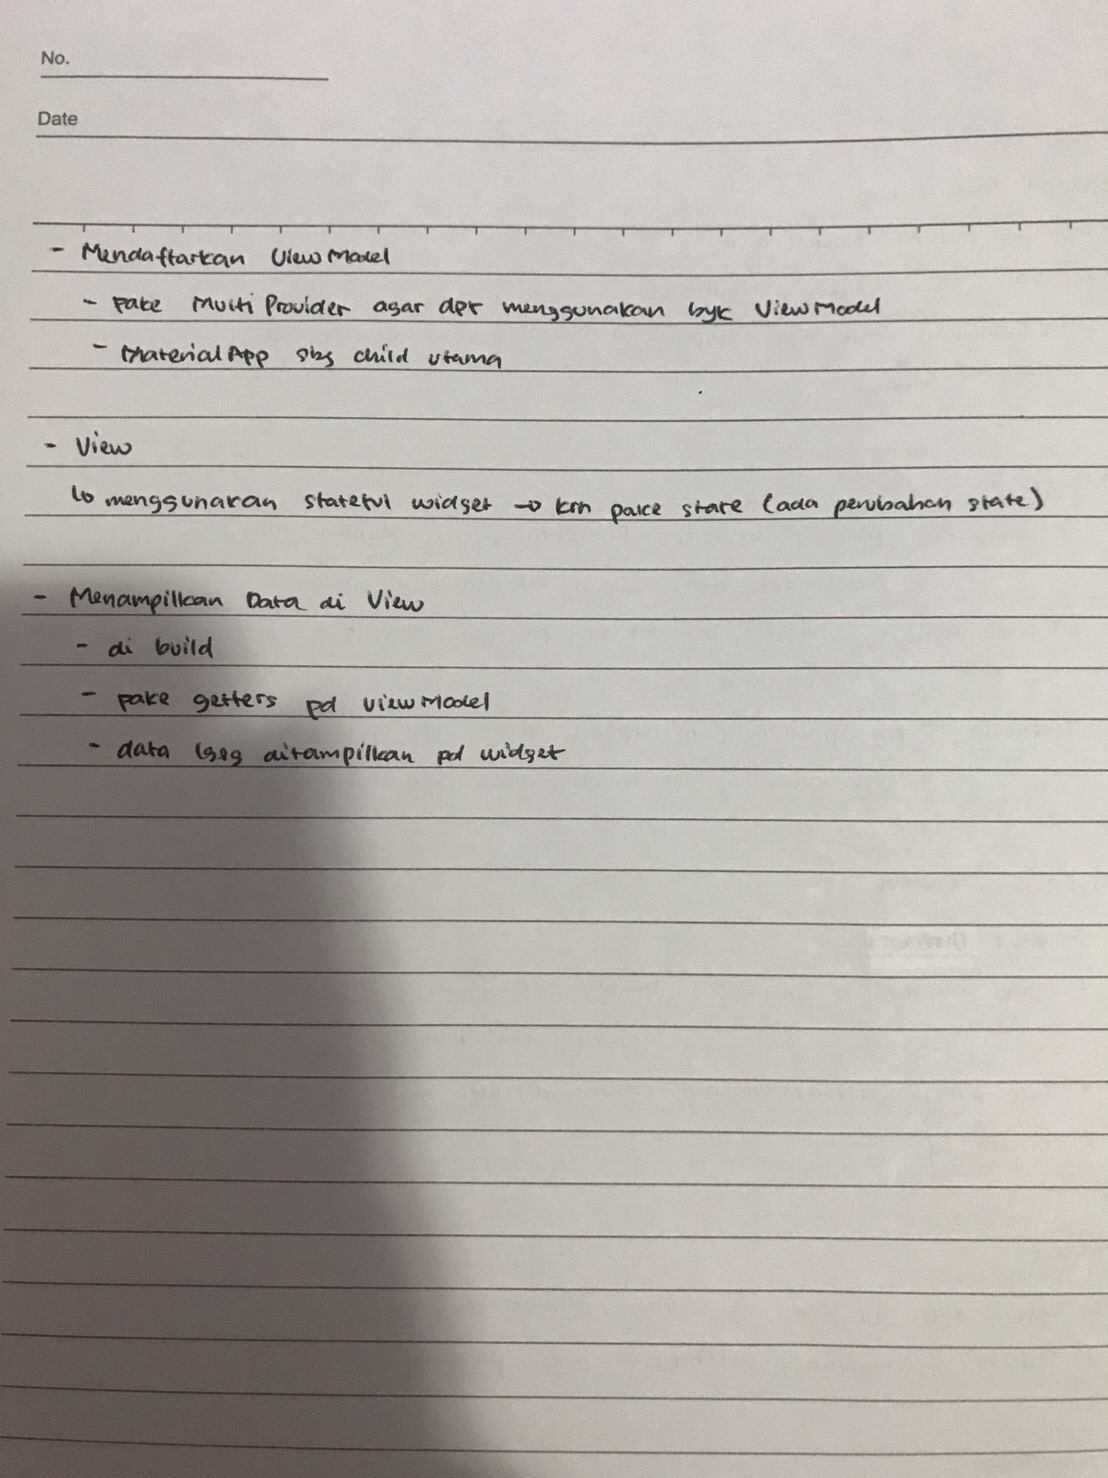 No.
Date
- Mendaftarkan ViewModel
- pake MultiProvider agar dpt menggunakan byk ViewModel
- MaterialApp sbg child utama
- View
↳ menggunakan stateful widget → krn pake state (ada perubahan state)
- Menampilkan Data di View
- di build
- pake getters pd viewModel
- data lgsg ditampilkan pd widget